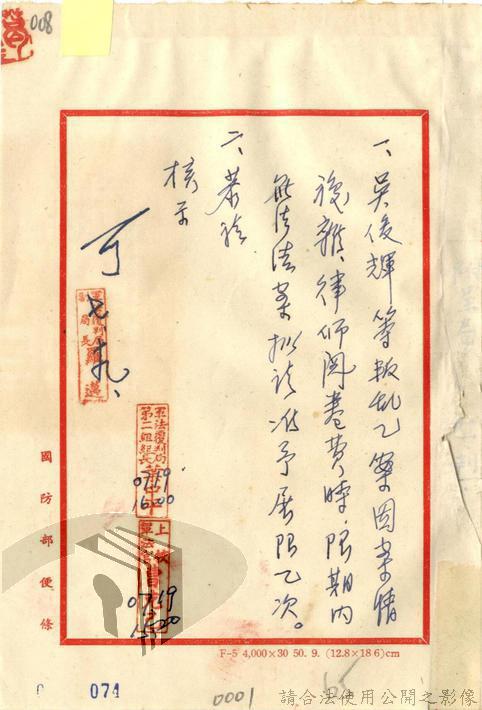 008
一、吳俊輝等叛乱乙案因案情
複雜、律师閱卷費時、限期內
無法法案擬請准予展限乙次。
二、恭請
核示
可
軍法覆判局
副局長羅邁
軍法覆判局
第二組組長
0719
1600
上校
0719
1500
國防部便條
F-5 4,000×30 50. 9. (12.8×18 6)cm
074
0001
請合法使用公開之影像